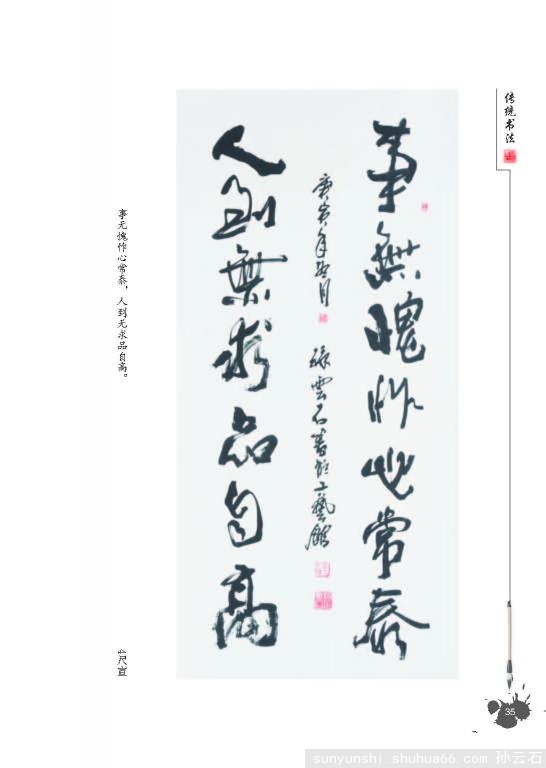 传统书法
事無愧怍心常泰
庚寅年
雲石書於
藝館
人到無求品自高
事无愧怍心常泰，人到无求品自高。
4尺宣
35
sunyunshi.shuhua66.com 孙云石